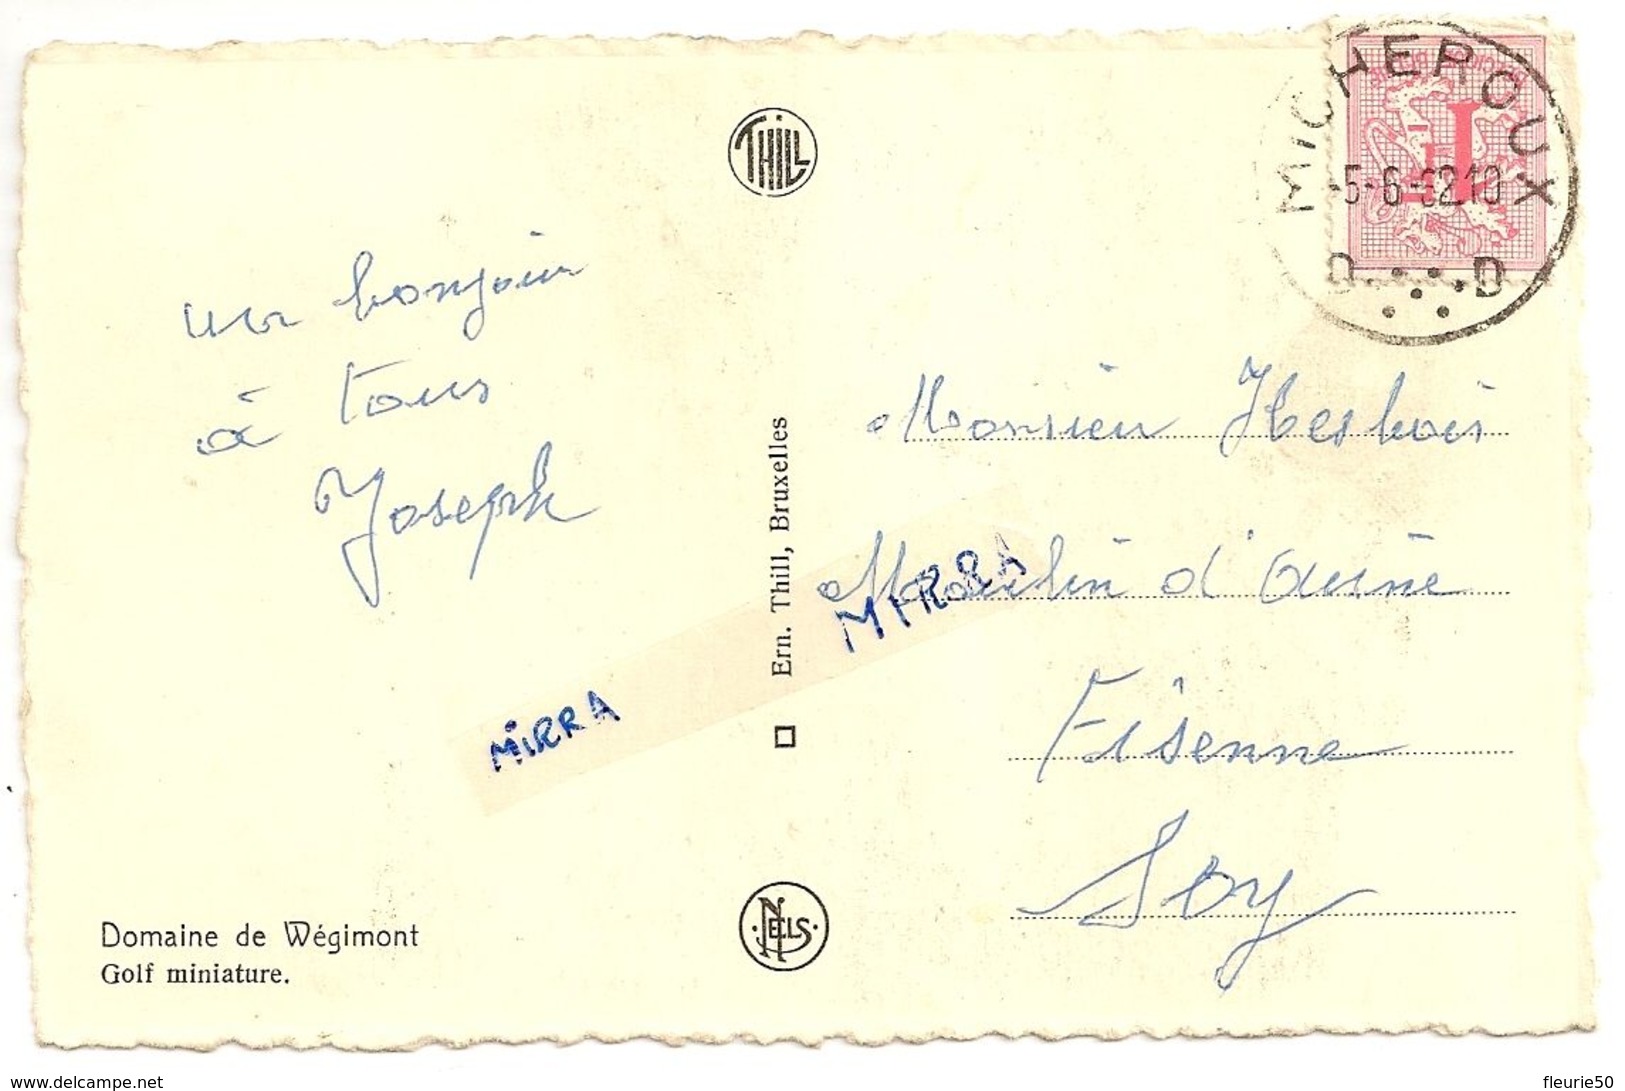 THILL
MICHEROUX
-5-6-6210
D D
un bonjour
à tous
Joseph
Monsieur Hesbois
Moulin d'
Fisenne
Soy
MIRRA
MIRRA
Ern. Thill, Bruxelles
NELS
Domaine de Wégimont
Golf miniature.
www.delcampe.net
fleurie50